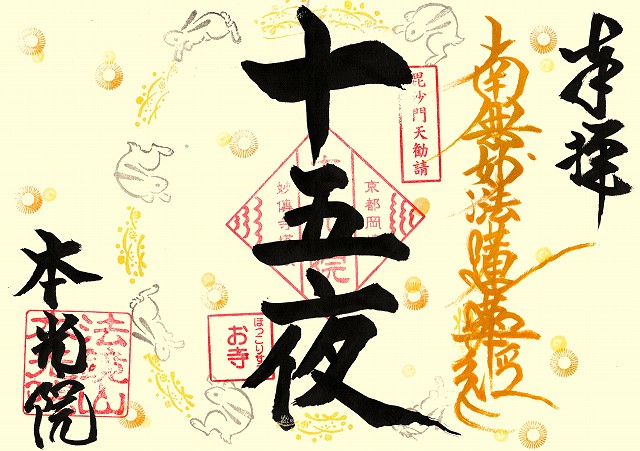 奉拝
南無妙法蓮華経
毘沙門天勧請
十五夜
京都岡
妙傳寺塔
院
ほっこりす
お寺
本光院
法鏡山